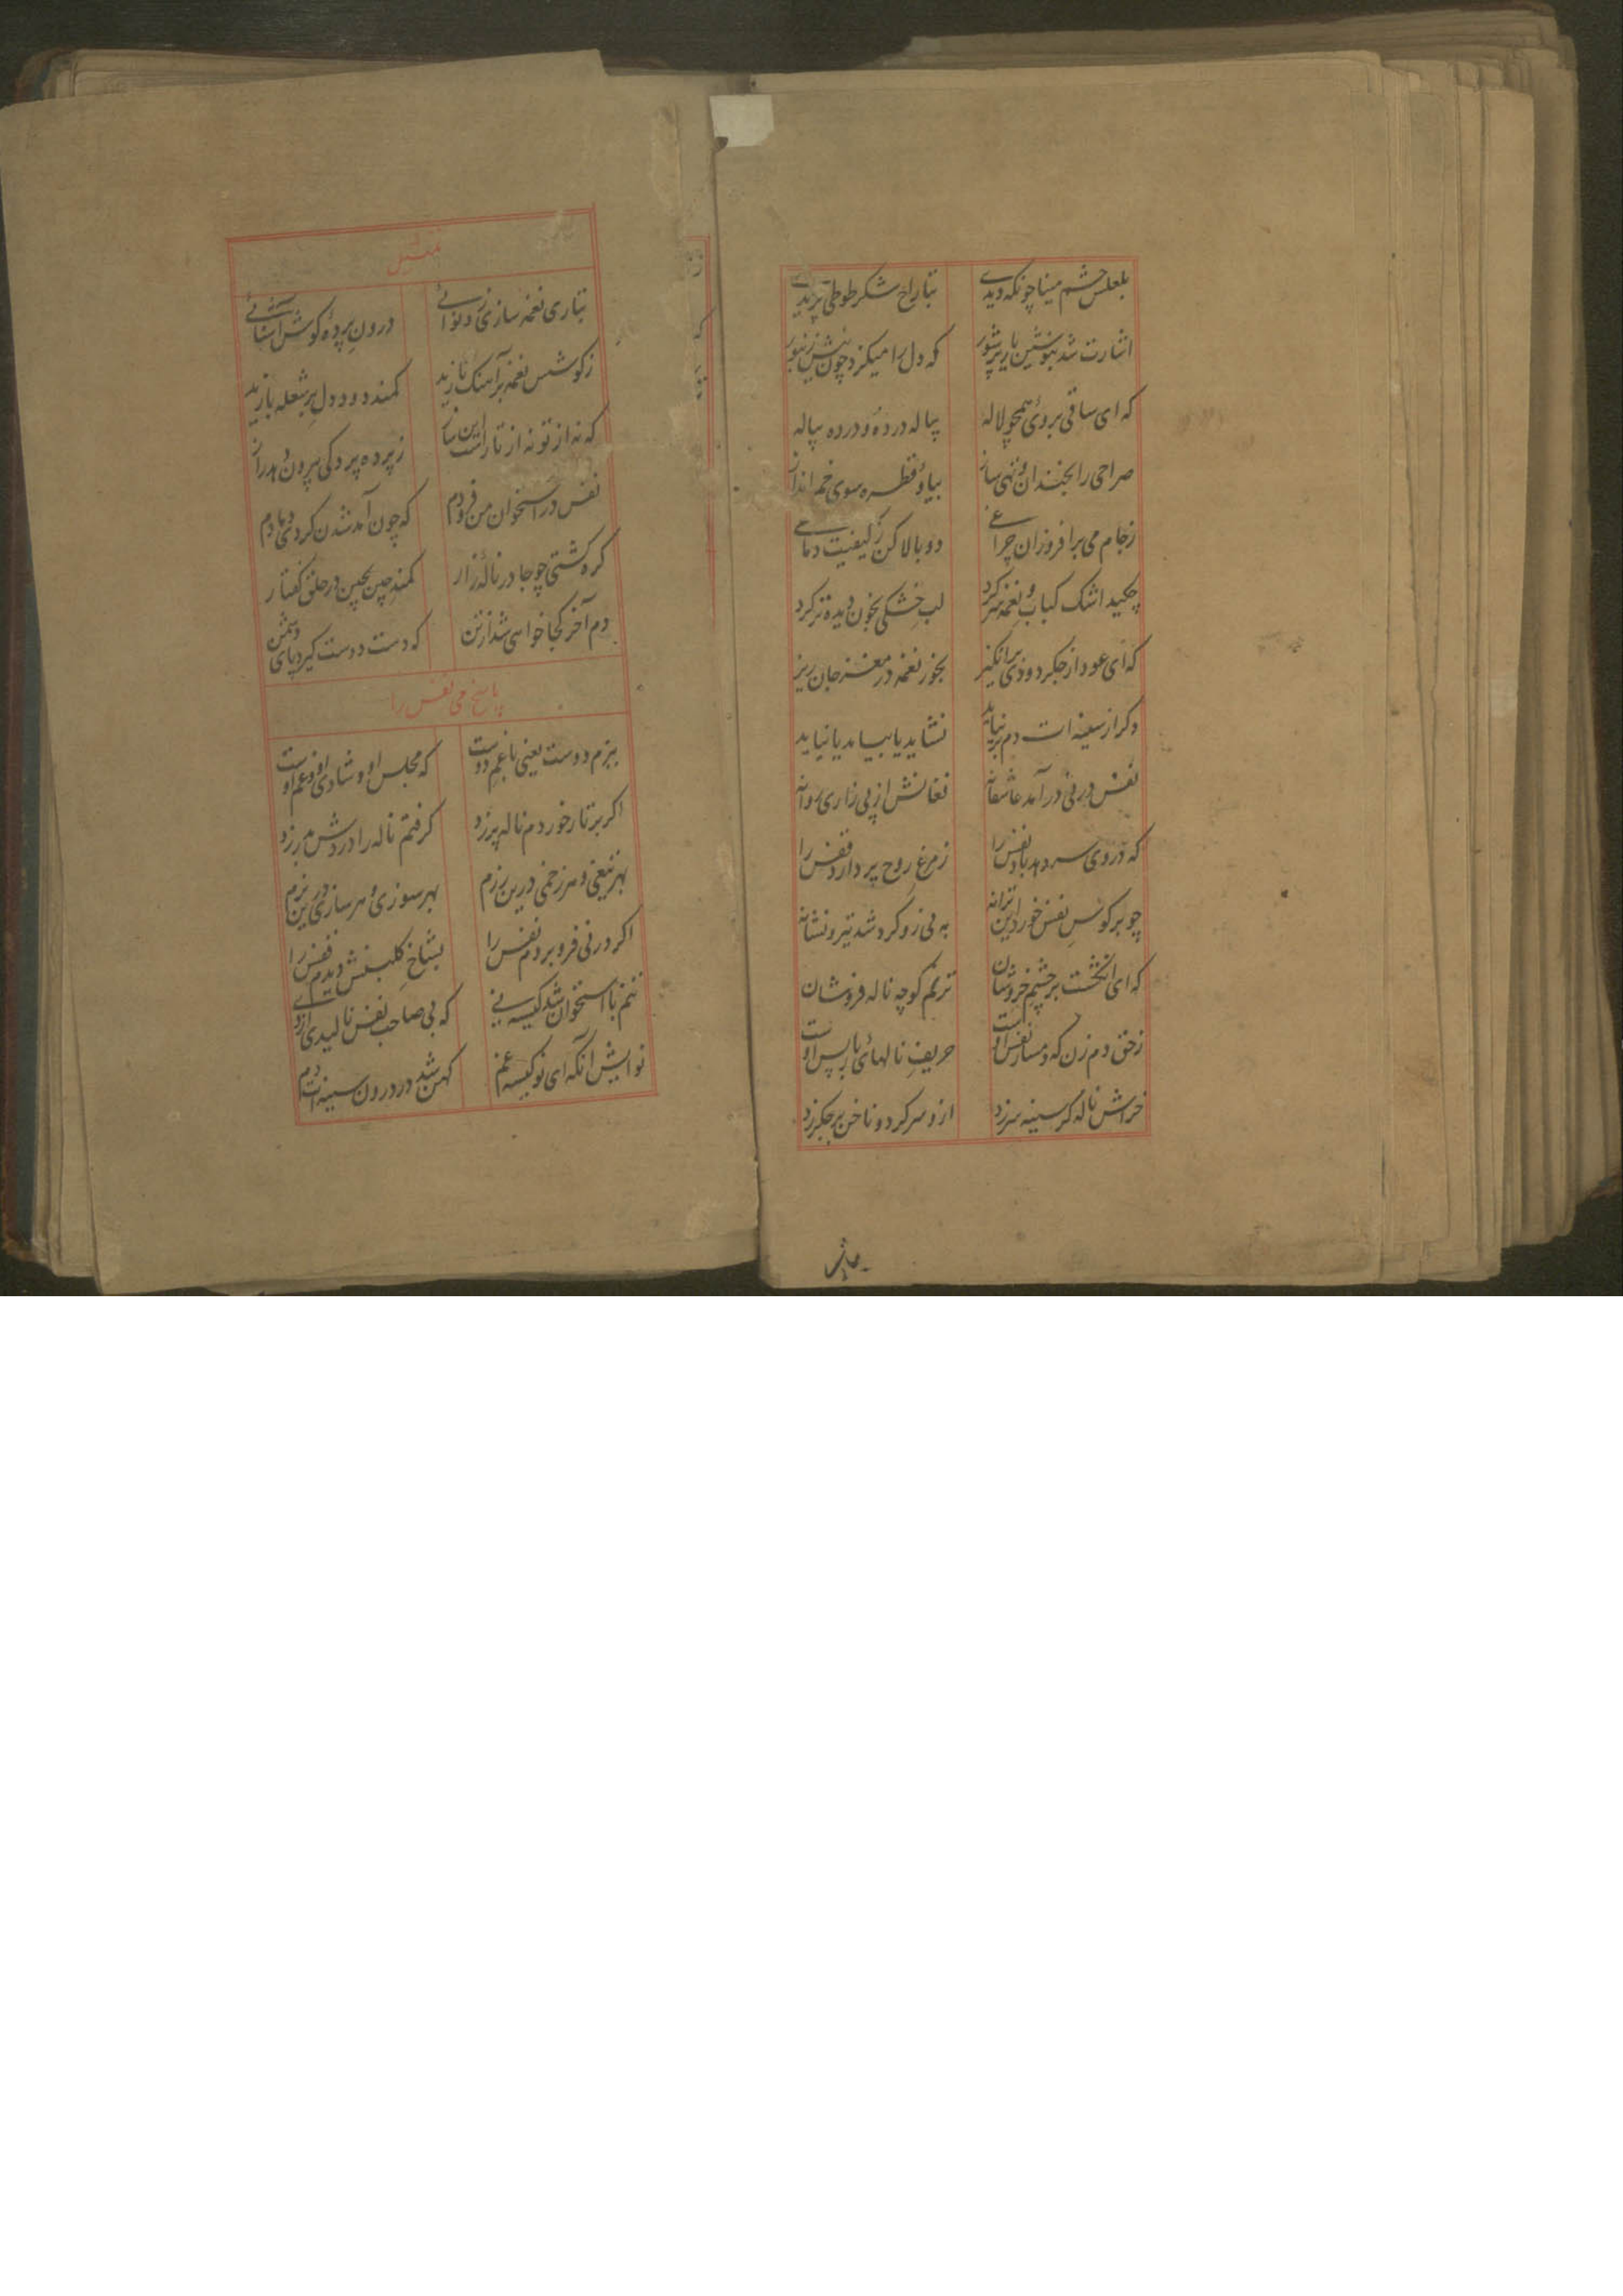 بلعلش چشم مینا چونکه دیدی بتاراج شکر طوطی پریدی
اشارت شد بنوشین یار پرشور که دل را میکزد چون نیش زنبور
که ای ساقی بروی همچو لاله پیاله درده و درده پیاله
صراحی را بخندان و تهی ساز بیا و قطره سوی خم انداز
زجام می برافروزان چراغی دو بالا کن ز کیفیت دماغی
چکید اشک کباب و نغمه سر کرد لب خشکی بخون دیده تر کرد
که ای عود از جکر دودی برانکیز بخور نغمه در مغز جان ریز
وکر از سینه ات دم برنیاید نشاید یا بیاید یا نیاید
نفس در نی درآمد عاشقانه فغانش از پی زاری روانه
که در وی سر دهد باد نفس را ز مرغ روح پر دارد قفس را
چو بر کوس نفس خورد این ترانه به نی زو کرد شد تیر و نشانه
که ای انکشت بر چشم خروشان ترنم کوچه ناله فروشان
زحق دم زن که دمساز نفس اوست حریف نالهای باز پس اوست
خراش ناله کر سینه سر زد ازو سر کرد و ناخن بر جکر زد
تمثیل
بتاری نغمه سازی زد نوائی درون پرده کوش آشنائی
ز کوشش نغمه بر آهنک نازید کمند دود دل بر شعله یازید
که نه از تو نه از تار است این ساز ز پرده پردکی بیرون دهد راز
نفس در استخوان من فرو دم که چون آمد شدن کردی دمادم
کره کشتی چو جا در ناله زار کمند چین بچین در حلق کفتار
دم آخر کجا خواهی شد از تن که دست دوست کیرد پای دشمن
پاسخ نی نفس را
ببزم دوست یعنی با غم دوست که مجلس او و شادی او و غم اوست
اکر بر تار خوردم ناله پر زد کرفتم ناله را در دش سر زد
بهر تیغی و هر زخمی درین رزم بهر سوزی و هر سازی درین بزم
اکر در نی فرو بردم نفس را بشاخ کلبنش دیدم قفس را
تنم با استخوان شد کیسه نی که بی صاحب نفس نالیدی از وی
نوایش آنکه ای نو کیسه غم کهن شد در درون سینه ات دم